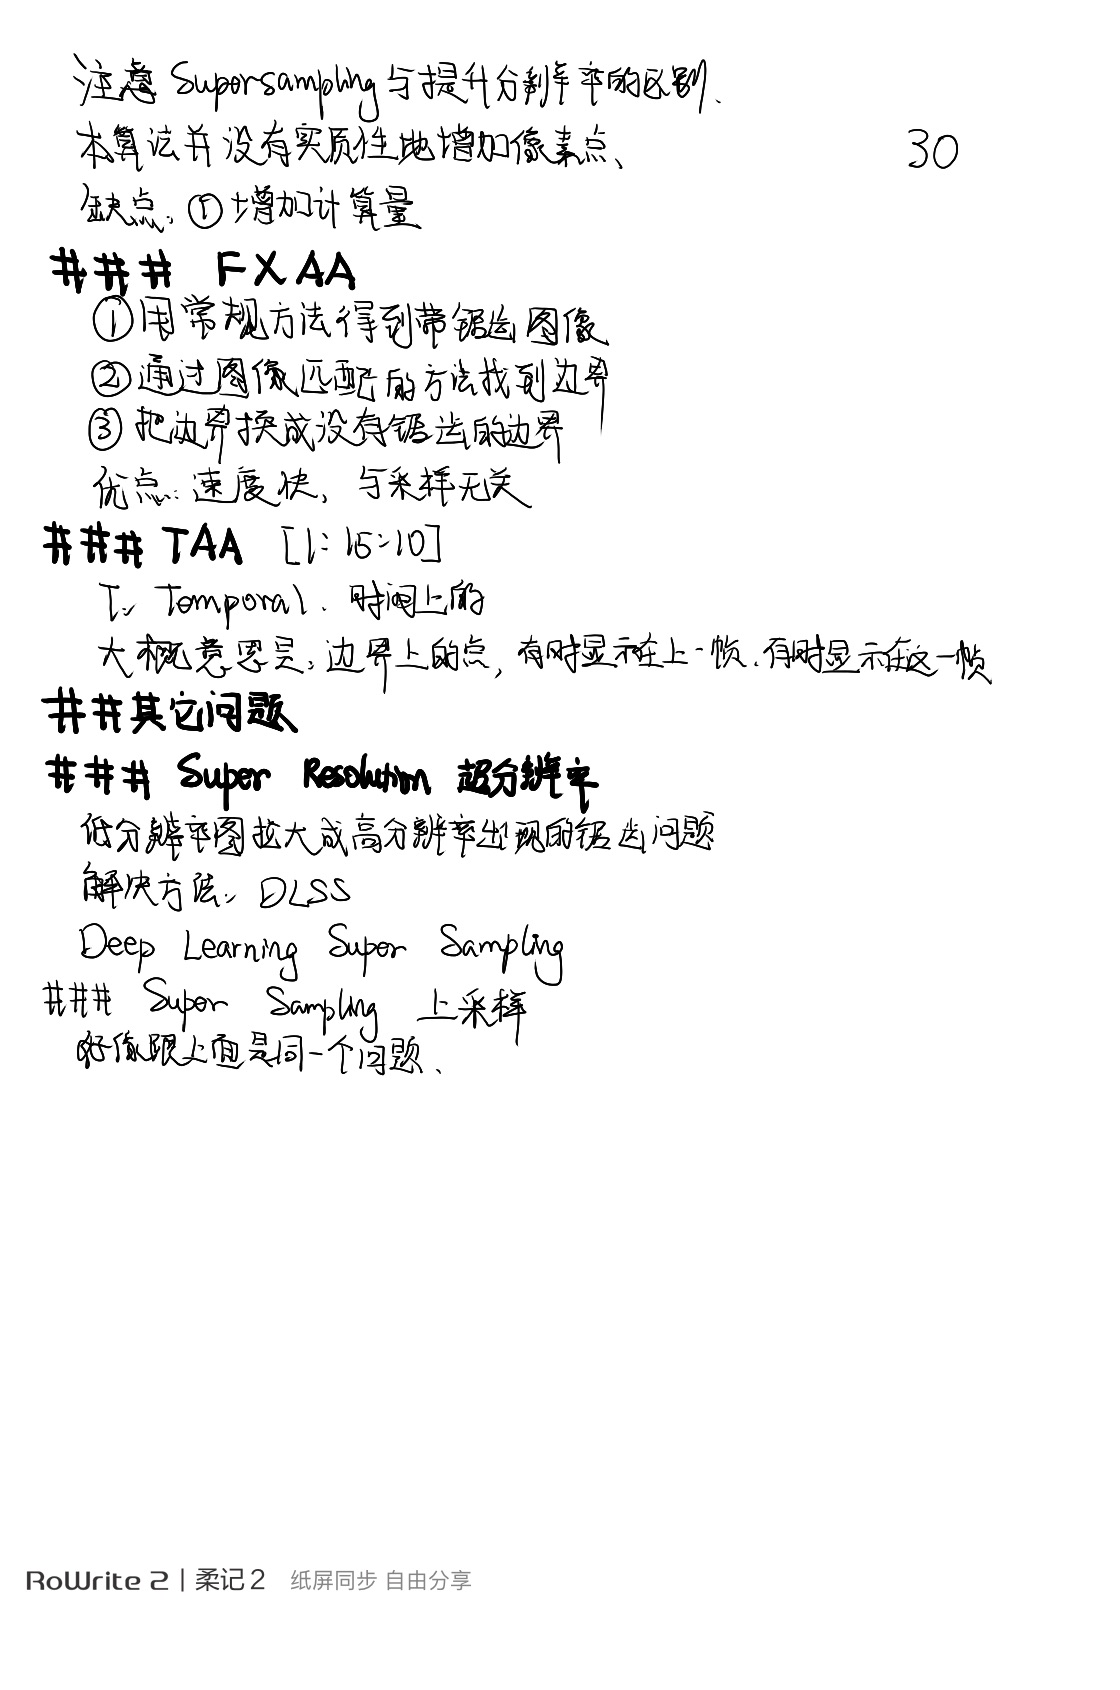 注意 Supersampling 与提升分辨率的区别.
本算法并没有实质性地增加像素点、
30
缺点: ① 增加计算量
### FXAA
① 用常规方法得到带锯齿图像
② 通过图像匹配的方法找到边界
③ 把边界换成没有锯齿的边界
优点: 速度快, 与采样无关
### TAA [1:15:10]
T: Temporal. 时间上的
大概意思是: 边界上的点, 有时显示在上一帧. 有时显示在这一帧
## 其它问题
### Super Resolution 超分辨率
低分辨率图拉大成高分辨率出现的锯齿问题
解决方法: DLSS
Deep Learning Super Sampling
### Super Sampling 上采样
好像跟上面是同一个问题、
RoWrite 2 | 柔记 2 纸屏同步 自由分享